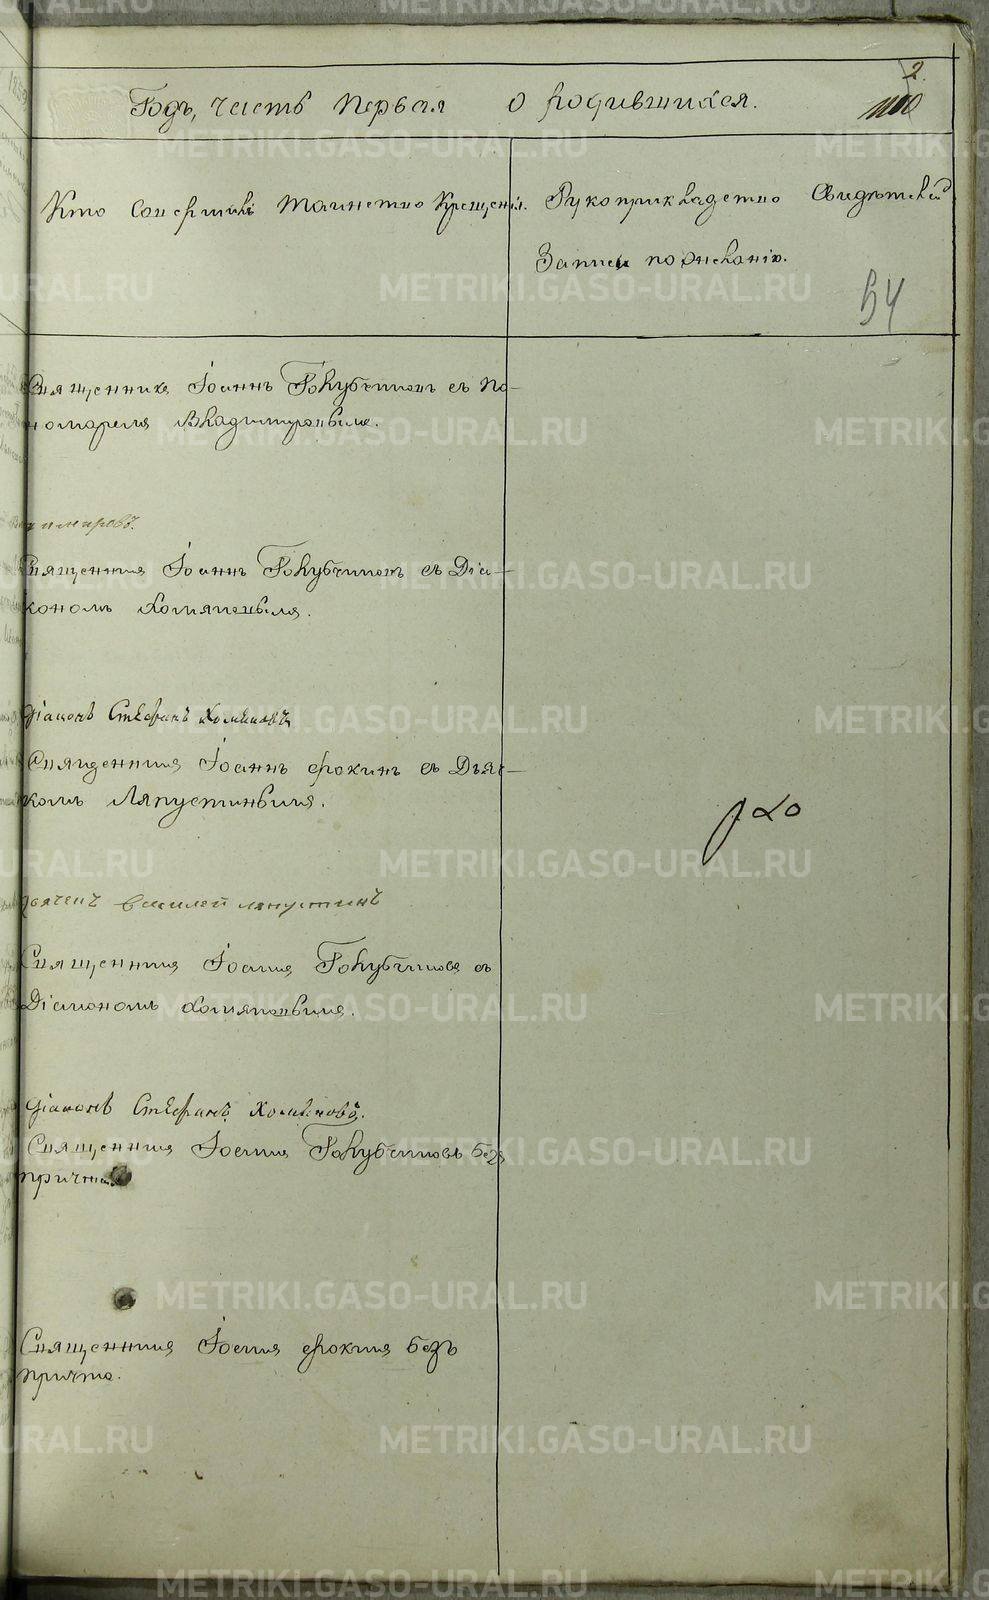 2.
Годъ, часть первая о родившихся.
Кто совершилъ таинство Крещенія.
Рукоприкладство Свидѣтелей
Записи по желанію.
54
Священникъ Іоаннъ Голубчиковъ съ по-
номаремъ Владиміровымъ.
Священникъ Іоаннъ Голубчиковъ съ Діа-
кономъ Хотяновымъ.
Діаконъ Стефанъ
Священникъ Іоаннъ Фокинъ съ Дьяч-
комъ Ляпустинымъ.
дьячекъ василей ляпустинъ
Священникъ Іоаннъ Голубчиковъ съ
Діакономъ Хотяновымъ.
Діаконъ Стефанъ
Священникъ Іоаннъ Голубчиковъ безъ
причта
Священникъ Іоаннъ Фокинъ безъ
причта.
METRIKI.GASO-URAL.RU